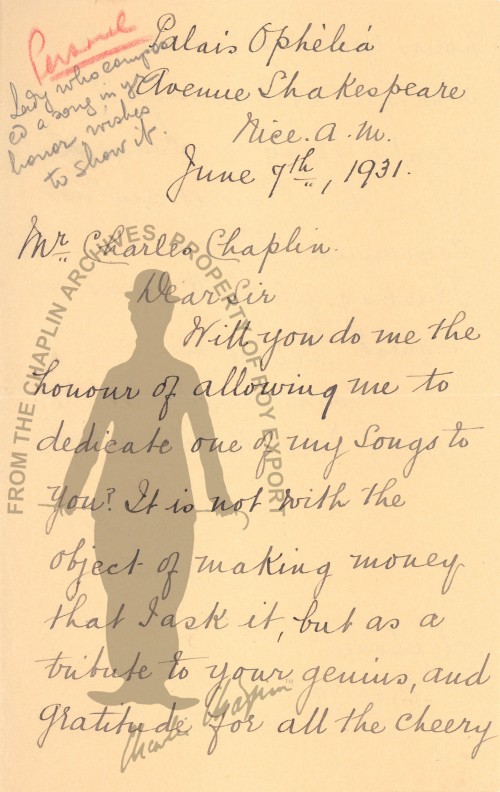 Personal
Lady who compos
ed a song in yr
honor wishes
to show it.
Palais Ophélia
Avenue Shakespeare
Nice. A. M.
June 7th, 1931.
Mr Charles Chaplin.
Dear Sir
Will you do me the
honour of allowing me to
dedicate one of my Songs to
you? It is not with the
object of making money
that I ask it, but as a
tribute to your genius, and
gratitude for all the cheery
FROM THE CHAPLIN ARCHIVES, PROPERTY OF ROY EXPORT
Charlie Chaplin